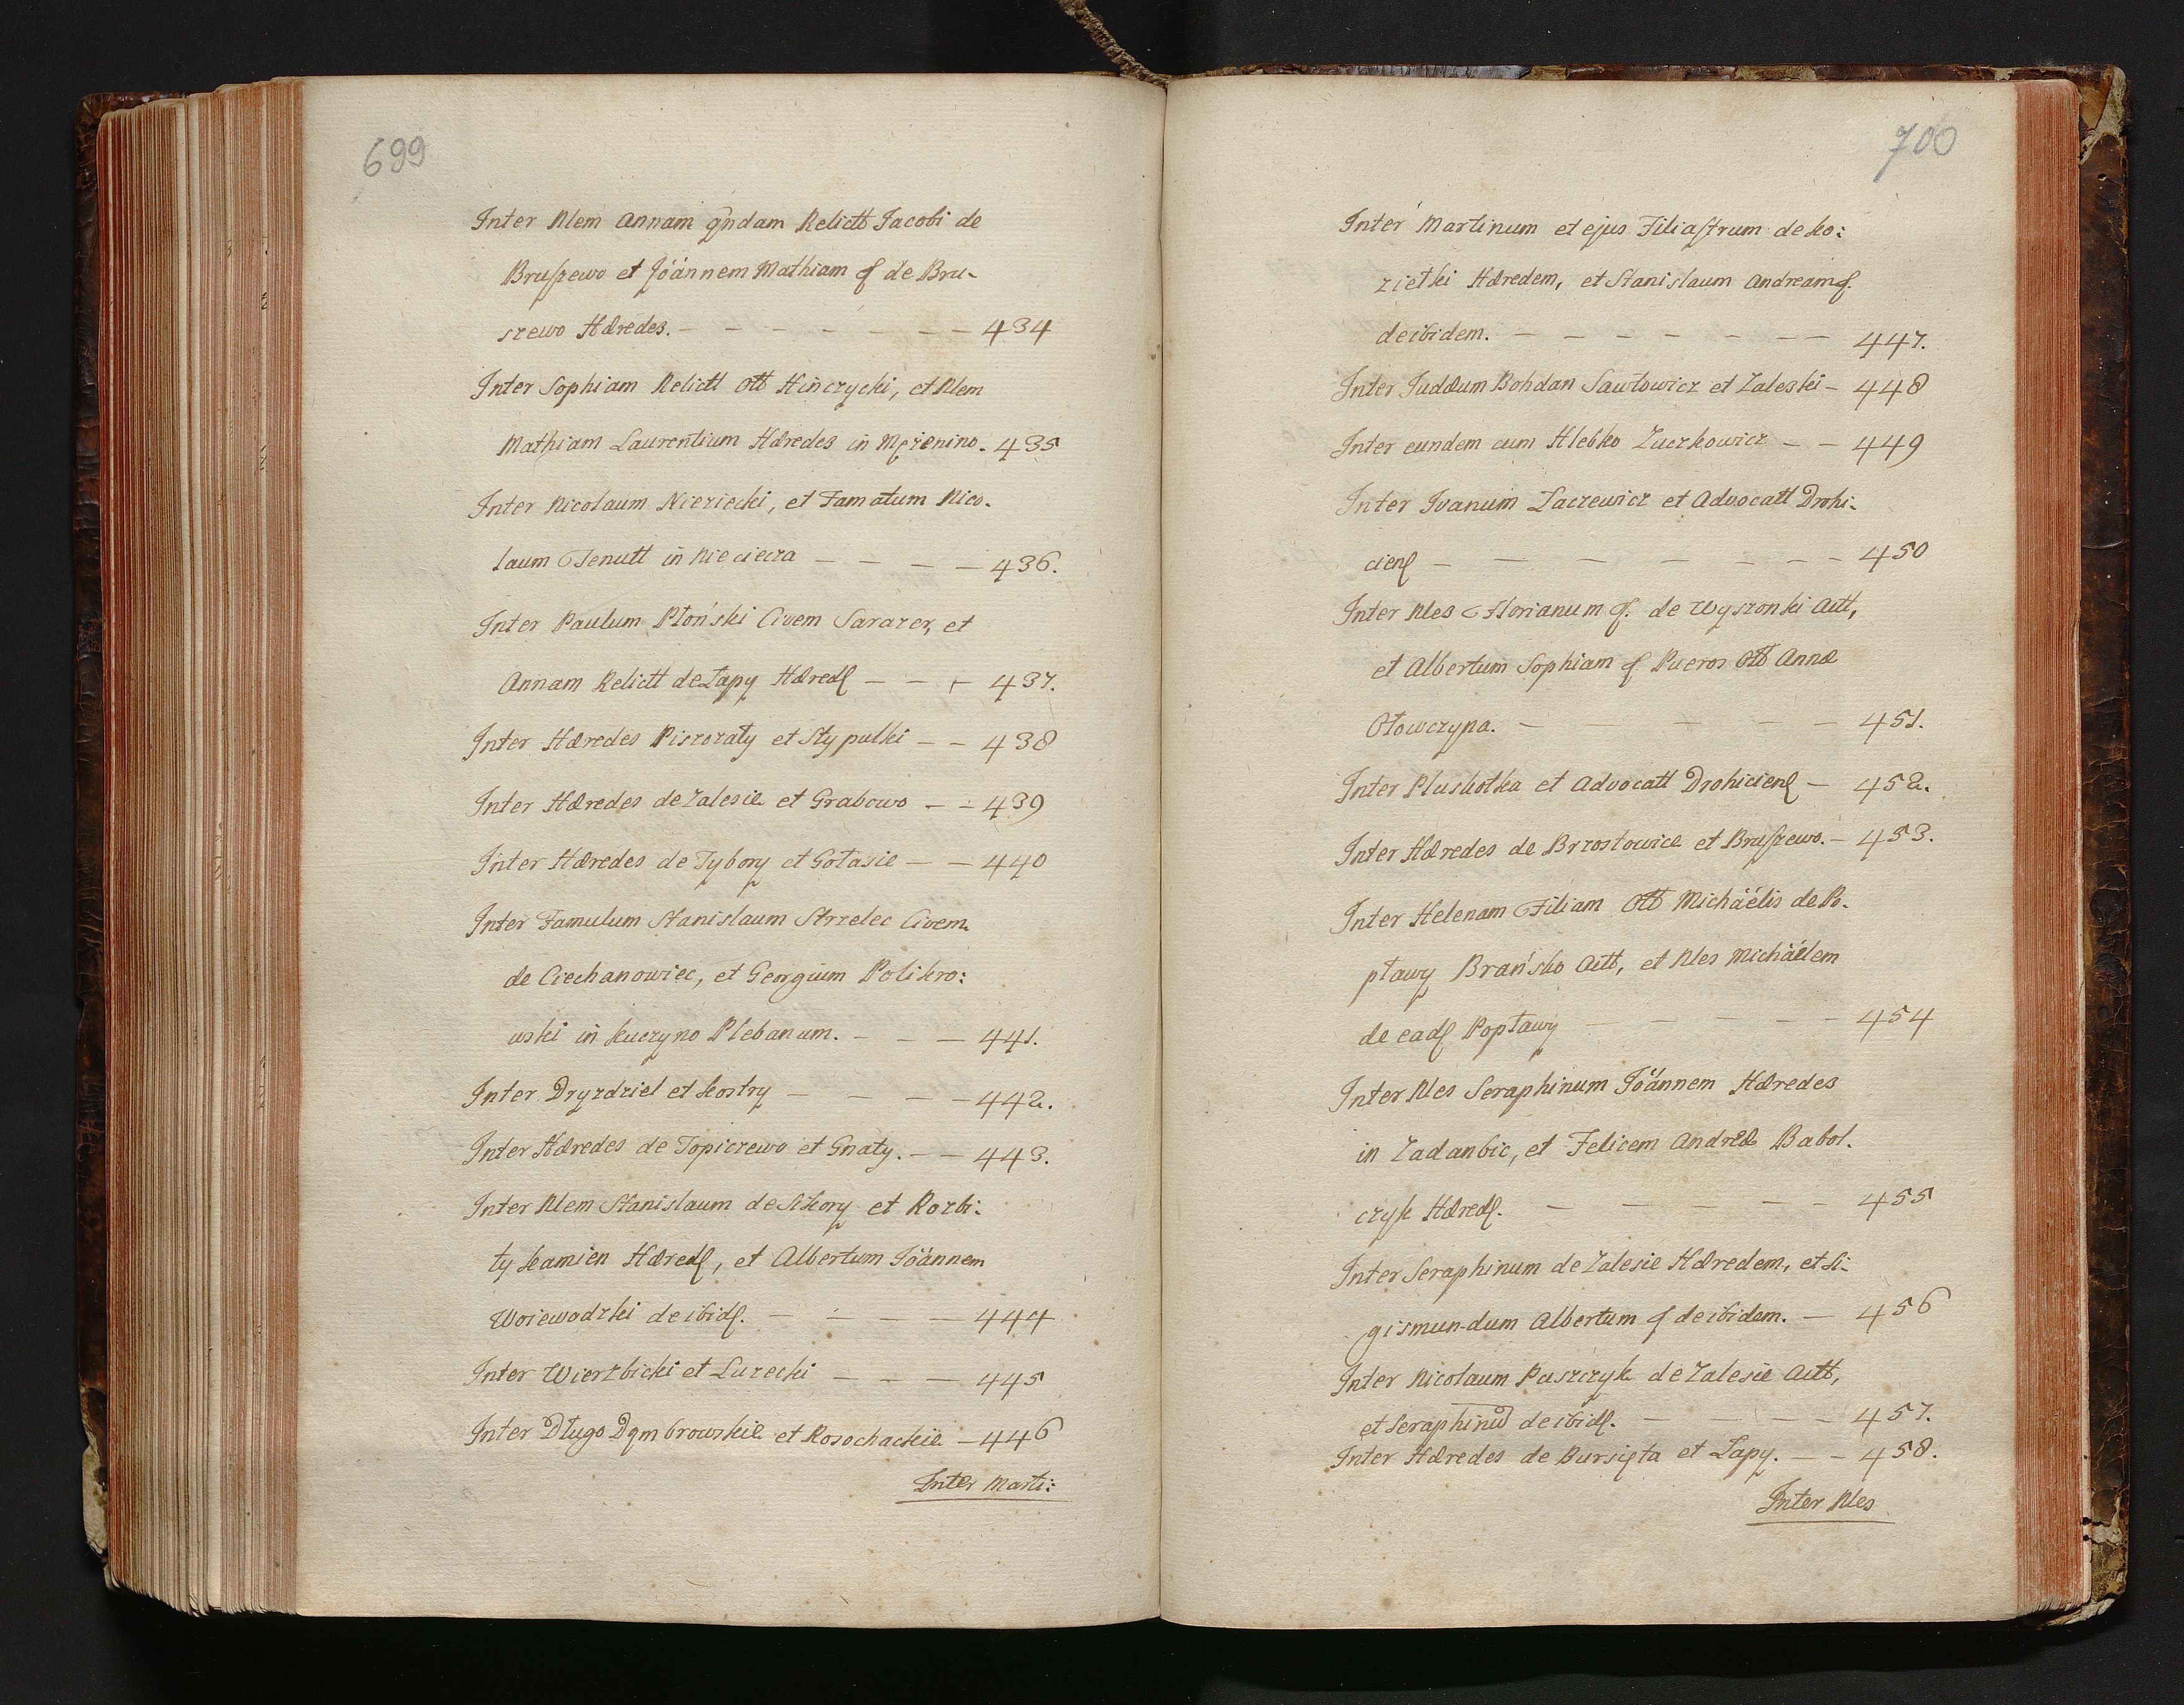 699
Inter Nlem Annam qndam Relictt Jacobi de
Bruszewo et Joannem Mathiam & de Bru-
szewo Hæredes. - - - - - - - - 434
Inter Sophiam Relictt Ott Hinczycki, et Nlem
Mathiam Laurentium Hæredes in Mężenino. 435
Inter Nicolaum Nieziecki, et Famatum Nico-
laum Tenutt in Nieciecza - - - - 436.
Inter Paulum Płoński Civem Sarazer, et
Annam Relictt de Łapy Hæred - - - 437.
Inter Hæredes Piszczaty et Stypułki - - 438
Inter Hæredes de Zalesie et Grabowo - - 439
Inter Hæredes de Tybory et Gołasie - - 440
Inter Famulum Stanislaum Strzelec Civem
de Ciechanowiec, et Georgium Polikro:
wski in Kuczyno Plebanum. - - - 441.
Inter Dryzdziel et Kostry - - - - 442.
Inter Hæredes de Topiczewo et Gnaty. - - 443.
Inter Nlem Stanislaum de Sikory et Rozbi:
ty Kamien Hæred, et Albertum Joannem
Woiewodzki de ibid. - - - - 444
Inter Wierzbicki et Luzecki - - - 445
Inter Długo Dąmbrowskie et Rosochackie - 446
Inter Marti:
700
Inter Martinum et ejus Filiastrum de Ko:
zietki Hæredem, et Stanislaum Andream &
de ibidem. - - - - - - - - 447.
Inter Judæum Bohdan Sawłowicz et Zaleski - 448
Inter eundem cum Hlebko Zuczkowicz - - 449
Inter Ivanum Łaczewicz et Advocatt Drohi:
cien - - - - - - - 450
Inter Nles Florianum & de Wyszonki Actt,
et Albertum Sophiam & Pueros Ott Annæ
Ołowczyna. - - - - - 451.
Inter Pluskotka et Advocatt Drohicien - 452.
Inter Hæredes de Brzostowice et Bruszewo. - 453.
Inter Helenam Filiam Ott Michaëlis de Po-
pławy Brańsko Actt, et Nles Michaëlem
de ead Popławy - - - - - 454
Inter Nles Seraphinum Joannem Hæredes
in Zadanbic, et Felicem Andreæ Babol-
czyk Hæred. - - - - - 455
Inter Seraphinum de Zalesie Hæredem, et Si-
gismundum Albertum & de ibidem. - 456
Inter Nicolaum Puszczyk de Zalesie Actt,
et Seraphinū de ibid. - - - - 457.
Inter Hæredes de Bursięta et Łapy. - - 458.
Inter Nles